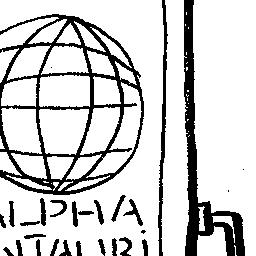 ALPHA
NTAURI